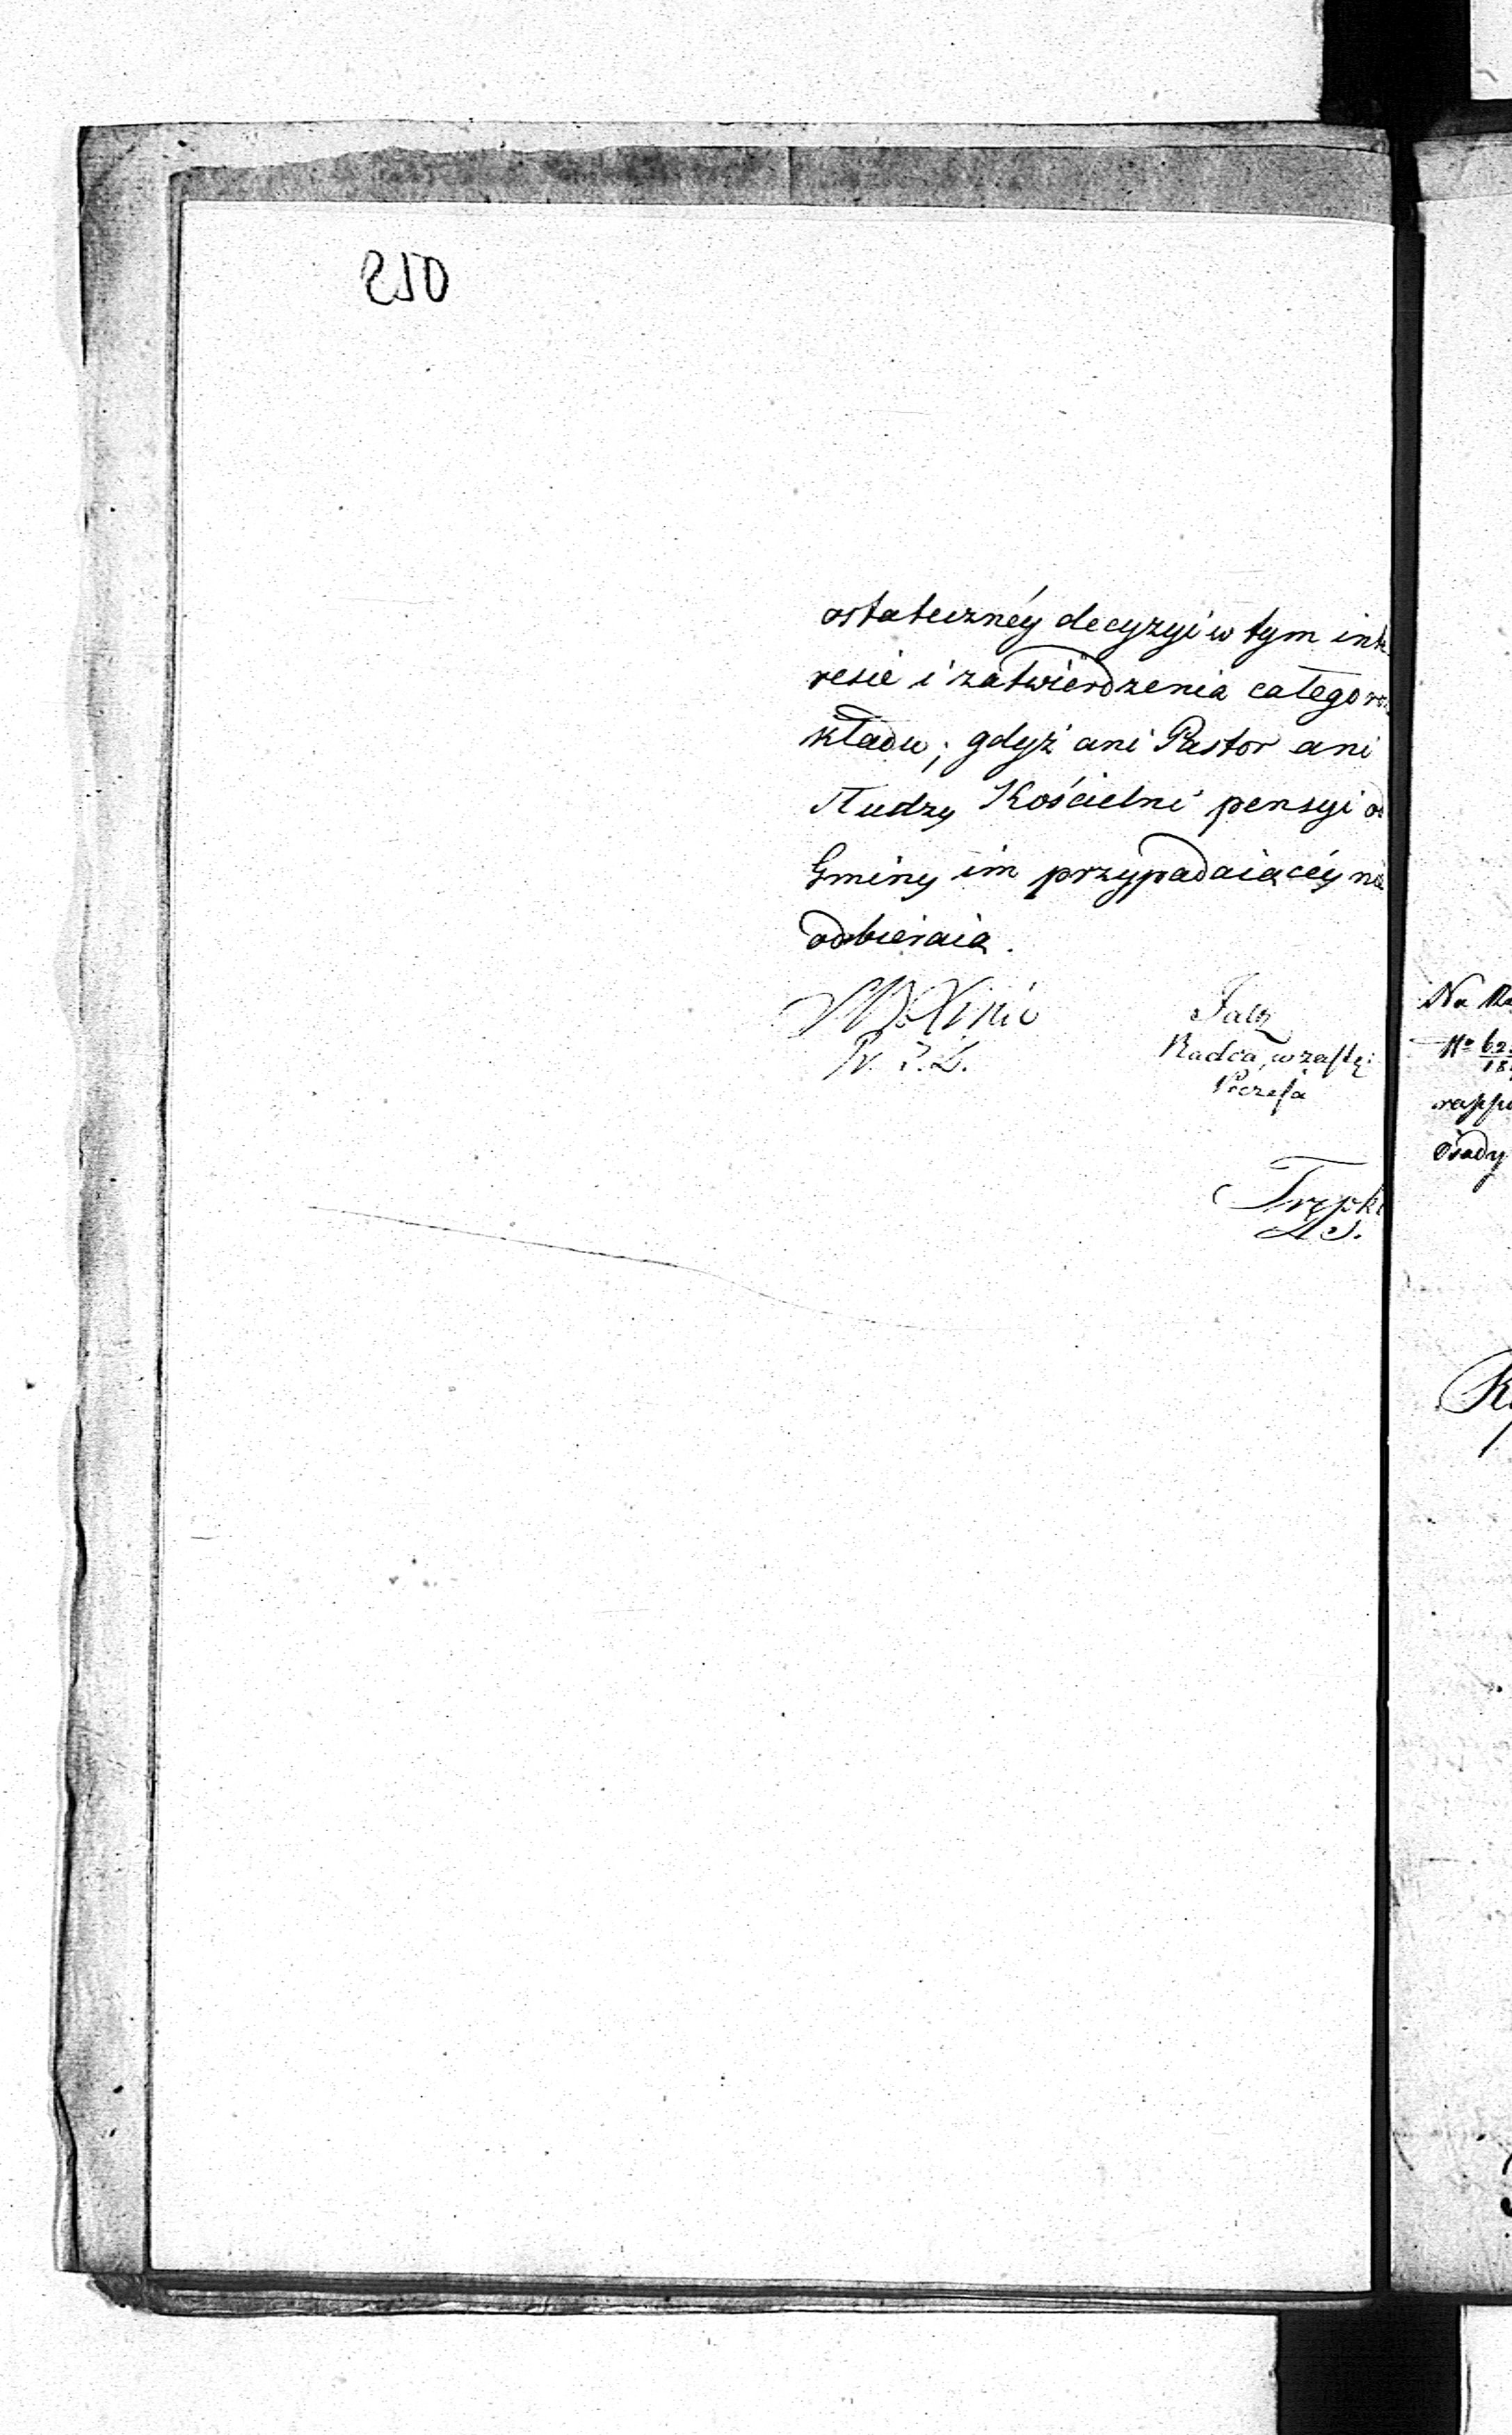 250
ostatecznéy decyzyi w tym inte
resie i zatwierdzenia categoro
kładu; gdyż ani Pastor ani
słudzy Kościelni pensyi od
Gminy im przypadaiącéy nie
odbieraią.
Radca, w zastę:
Prezesa
Trępki
Na Ra
No 62
18
rappo
Osady